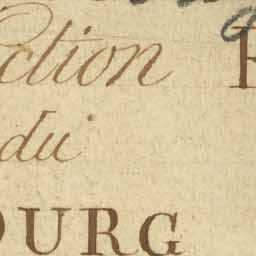 ction
du
OURG